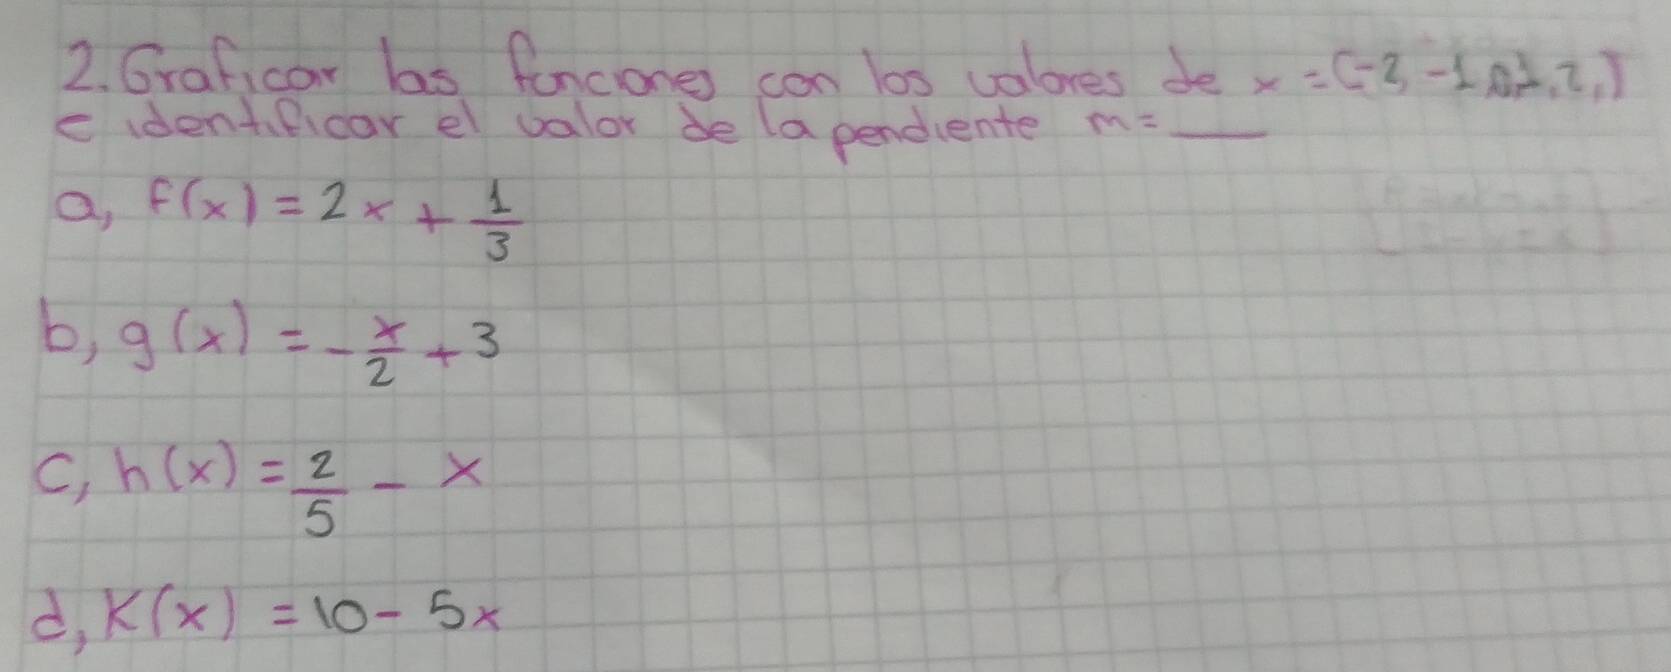 2. Graficar las funciones con los valores de x = (-2, -1, 0, 1, 2,)
e identificar el valor de la pendiente m = ___
a, f(x) = 2x + 1/3
b, g(x) = - x/2 + 3
c, h(x) = 2/5 - x
d, K(x) = 10 - 5x